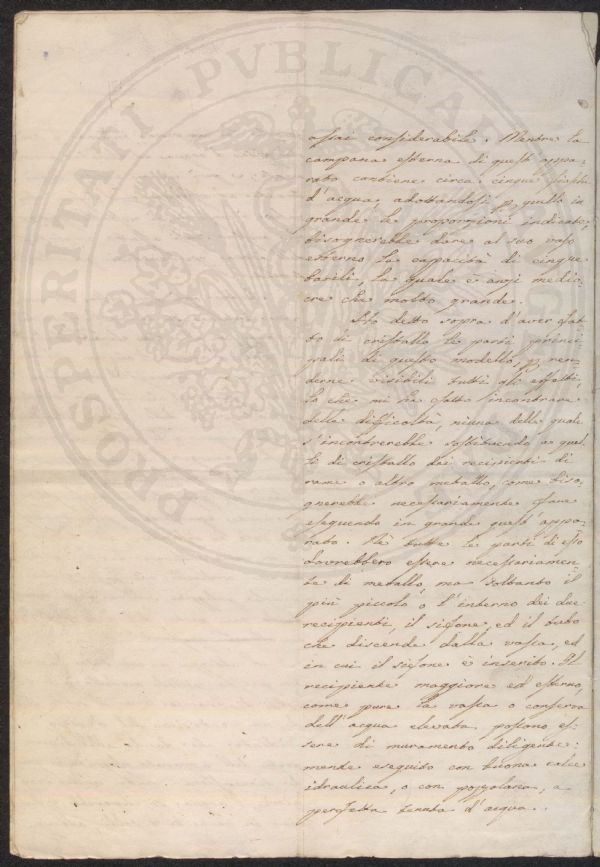 PROSPERITATI PVBLICAE
assai considerabile. Mentre la
campana esterna di quest'appa-
rato contiene circa cinque fiaschi
d'acqua, adottandosi p quello in
grande le proporzioni indicate,
bisognerebbe dare al suo vaso
esterno la capacità di cinque
barili, la quale è anzi medio,
cre che molto grande.
Ho detto sopra d'aver fat-
to di cristallo le parti princi
pali di questo modello, p ren-
derne visibili tutti gli effetti,
lo che mi ha fatto incontrare
delle difficoltà, niuna delle quali
s'incontrerebbe sostituendo a quel
li di cristallo dei recipienti di
rame o altro metallo, come biso,
gnerebbe necessariamente fare
eseguendo in grande quest'appa-
rato. Nè tutte le parti di esso
dovrebbero essere necessariamen-
te di metallo, ma soltanto il
più piccolo o l'interno dei due
recipienti, il sifone, ed il tubo
che discende dalla vasca, ed
in cui il sifone è inserito. Il
recipiente maggiore ed esterno,
come pure la vasca o conserva
dell'acqua elevata possono es-
sere di muramento diligente-
mente eseguito con buona calce
idraulica, o con pozzolana, a
perfetta tenuta d'acqua.